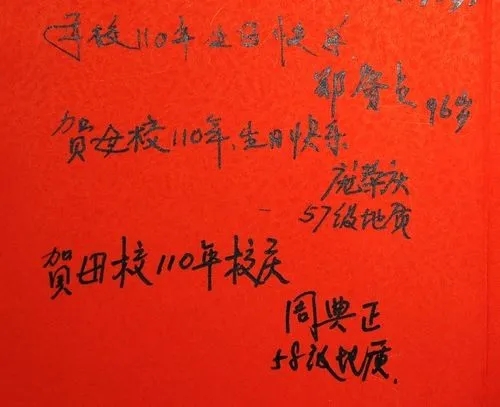 母校110年生日快乐
96岁
贺母校110年生日快乐
庞荣庆
57级地质
賀母校110年校庆
周典正
58级地质